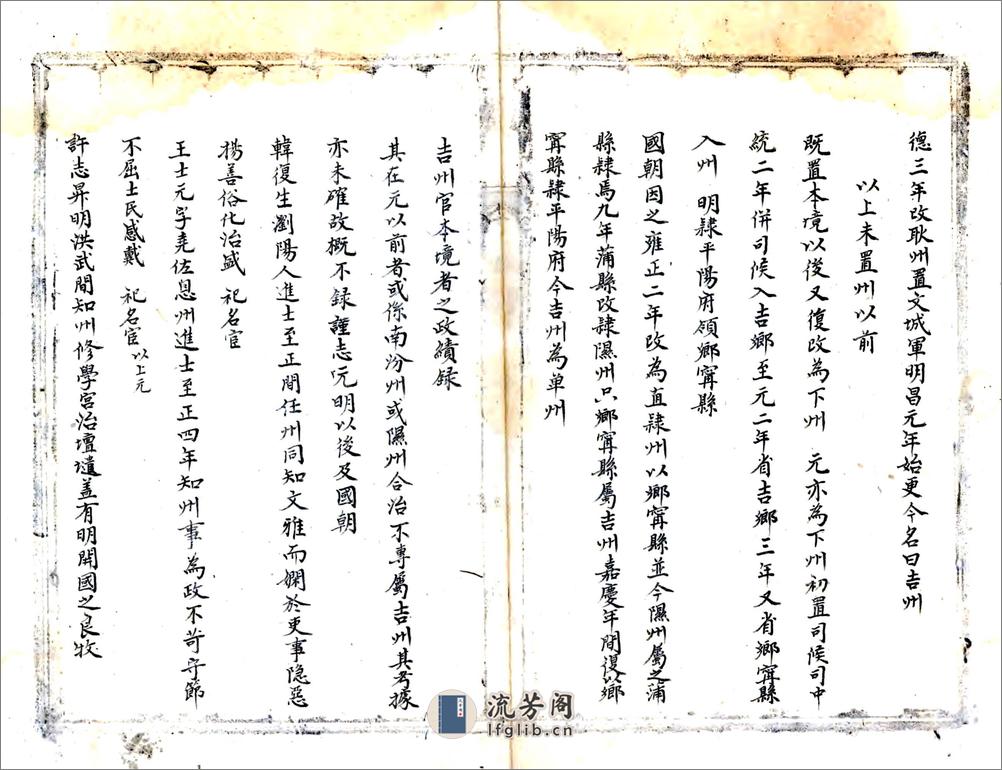 德三年改耿州置文城軍明昌元年始更今名曰吉州
以上未置州以前
既置本境以後又復改為下州　元亦為下州初置司候司中
統二年併司候入吉鄉至元二年省吉鄉三年又省鄉寗縣
入州　明隸平陽府領鄉寗縣
國朝因之雍正二年改為直隸州以鄉寗縣並今隰州屬之蒲
縣隸焉九年蒲縣改隸隰州只鄉寗縣屬吉州嘉慶年間復以鄉
寗縣隸平陽府今吉州為单州
吉州官本境者之政績録
其在元以前者或係南汾州或隰州合治不專屬吉州其考據
亦未確故概不録謹志元明以後及國朝
韓復生瀏陽人進士至正間任州同知文雅而嫻於吏事隐惡
揚善俗化治盛　祀名宦
王士元字堯佐息州進士至正四年知州事為政不苛守節
不屈士民感戴　祀名宦以上元
許志昇明洪武間知州修學宮治壇壝盖有明開國之良牧
流芳阁
lfglib.cn